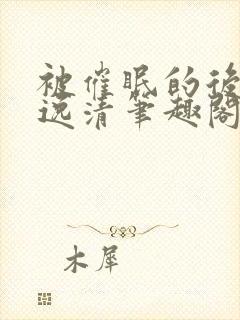 被催眠的後
远清笔趣阁
木犀